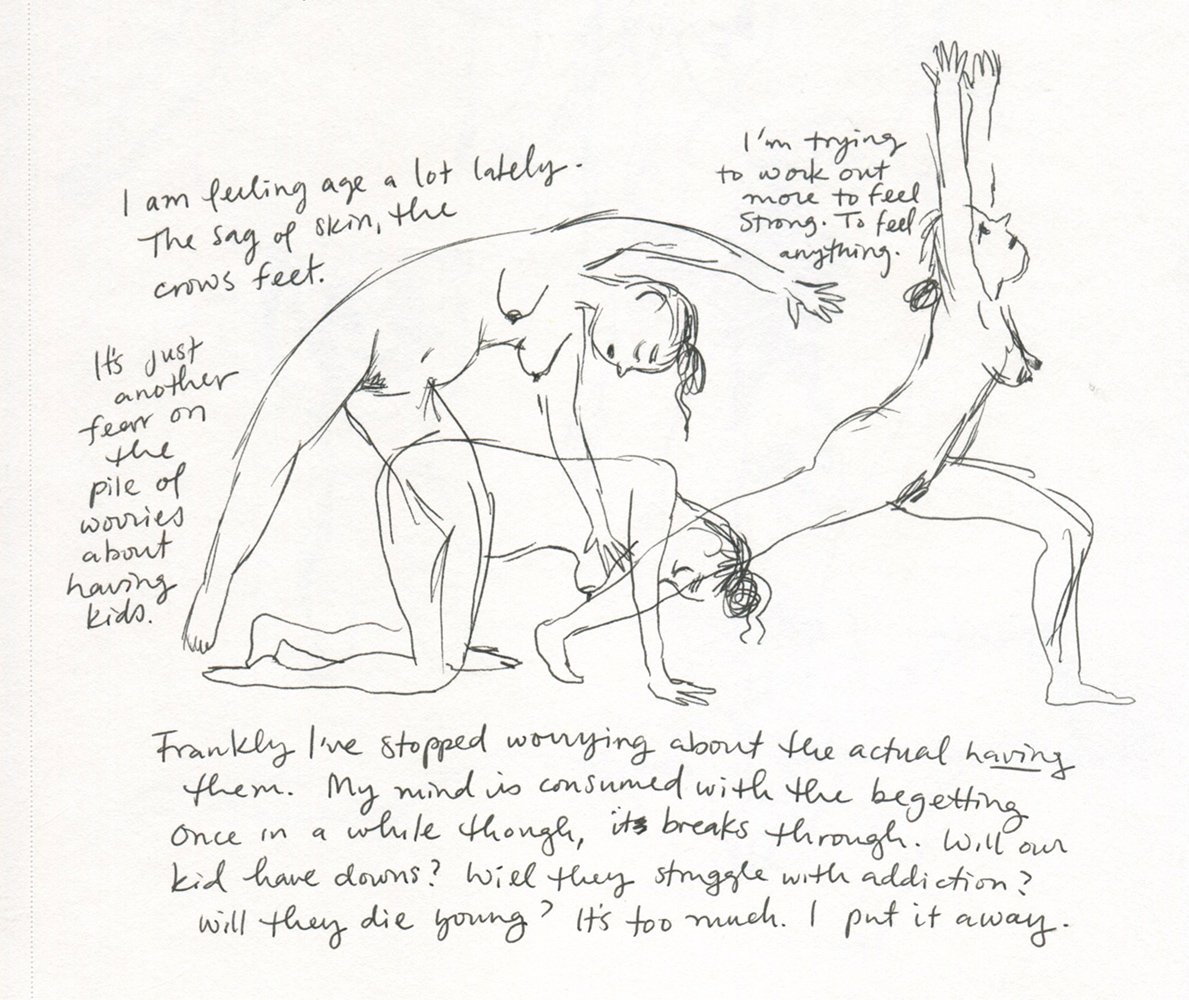 I am feeling age a lot lately.
The sag of skin, the
crows feet.
I'm trying
to work out
more to feel
strong. To feel
anything.
It's just
another
fear on
the
pile of
worries
about
having
kids.
Frankly I've stopped worrying about the actual having
them. My mind is consumed with the begetting
once in a while though, it breaks through. Will our
kid have downs? Will they struggle with addiction?
will they die young? It's too much. I put it away.